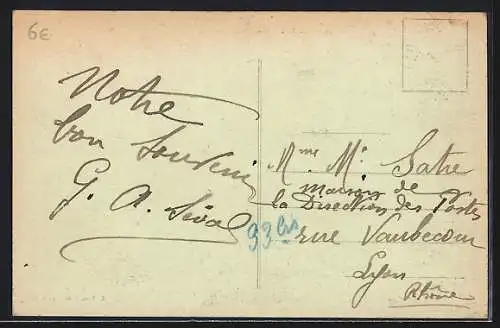 6E
Notre
bon Souvenir
G. A.
Mme M.
maison de
la Direction des Postes
93 bis
rue Vaubecour
Lyon
Rhône